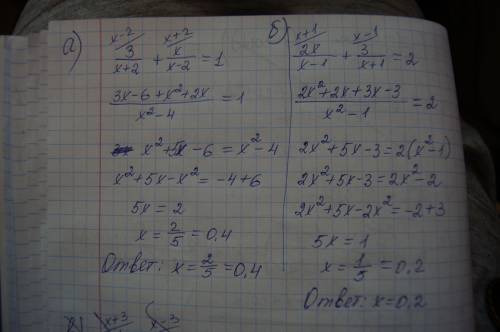 а) 3/(x+2) (x-2 + x/(x-2) (x+2 = 1
(3x-6+x²+2x)/(x²-4) = 1
x²+5x-6 = x²-4
x²+5x-x² = -4+6
5x = 2
x = 2/5 = 0,4
Ответ: x = 2/5 = 0,4
б) 2x/(x-1) (x+1 + 3/(x+1) (x-1 = 2
(2x²+2x+3x-3)/(x²-1) = 2
2x²+5x-3 = 2(x²-1)
2x²+5x-3 = 2x²-2
2x²+5x-2x² = -2+3
5x = 1
x = 1/5 = 0,2
Ответ: x = 0,2
x+3 x-3